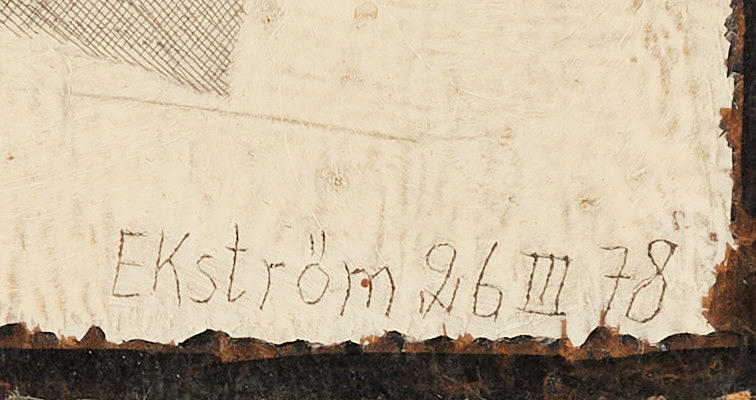 EKström 26 III 78